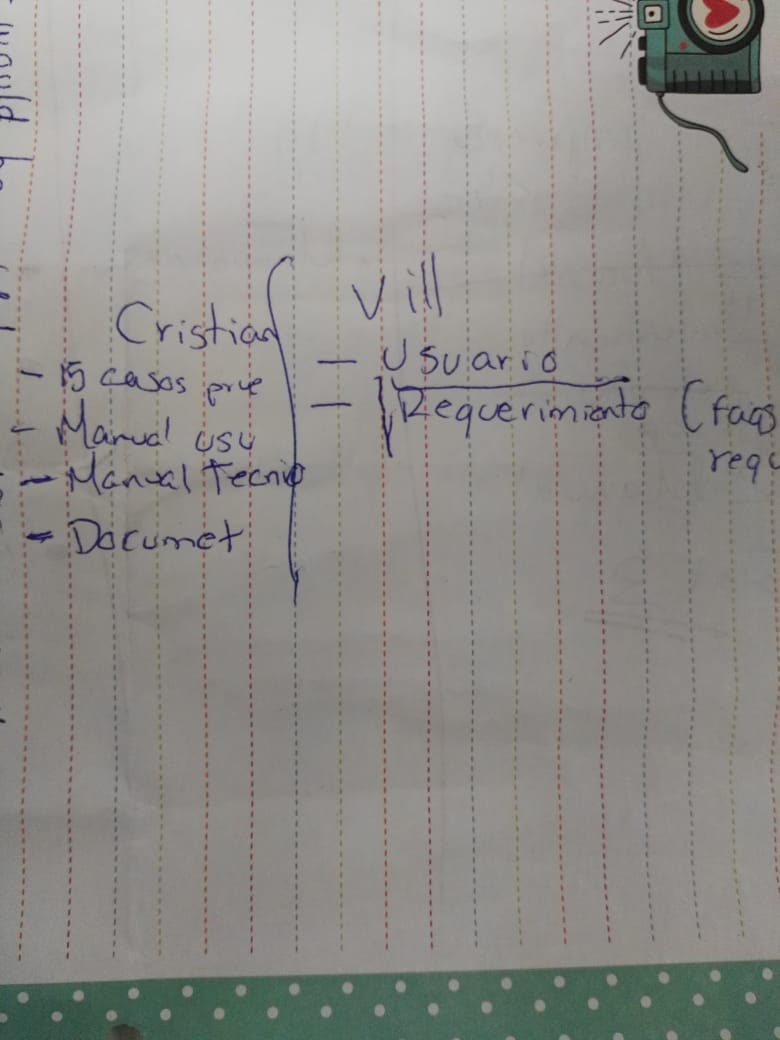 Cristian
- 15 casos prue
- Manual usu
- Manual Tecnic
- Documet
Vill
- Usuario
- Requerimiento (faqs
requ